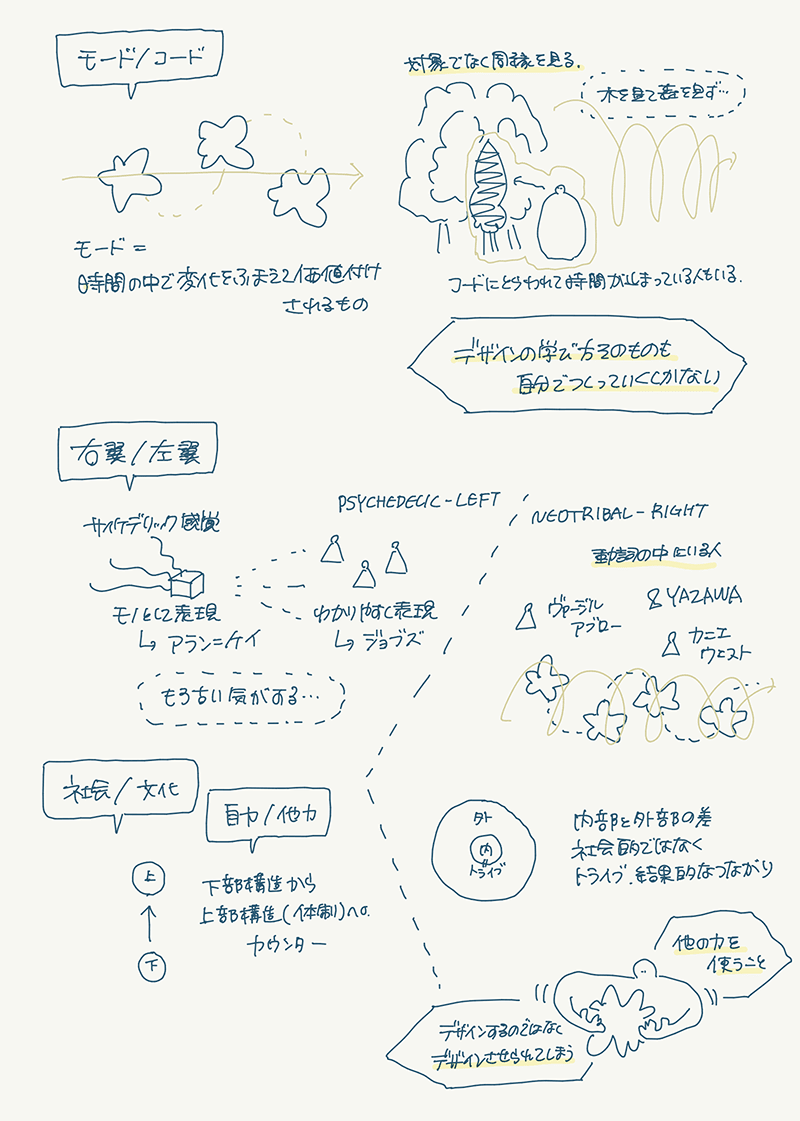 モード/コード
モード =
時間の中で変化をふまえて価値付け
されるもの
対象でなく周縁を見る.
木を見て森を見ず…
コードにとらわれて時間が止まっている人もいる.
デザインの学び方そのものも
自分でつくっていくしかない
右翼/左翼
サイケデリック感覚
モノとして表現
↳ アラン=ケイ
わかりやすく表現
↳ ジョブズ
もろちい気がする…
PSYCHEDELIC-LEFT
NEOTRIBAL-RIGHT
動詞の中にいる人
ヴァージル
アブロー
YAZAWA
カニエ
ウェスト
社会/文化
自力/他力
上
下
下部構造から
上部構造(体制)への
カウンター
外
内
トライブ
内部と外部の差
社会的ではなく
トライブ.結果的なつながり
他の力を
使うこと
デザインするのではなく
デザインさせられてしまう